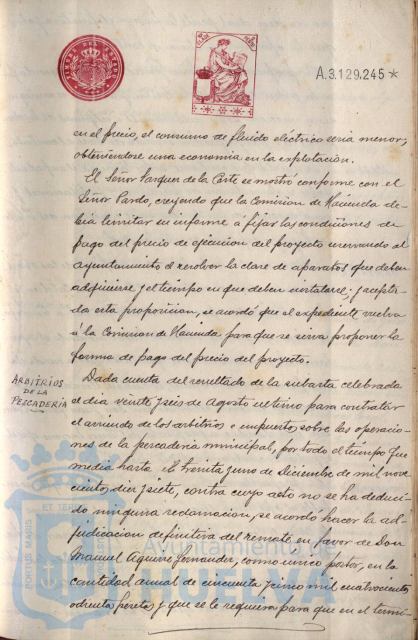 A.3.129.245*
en el precio, el consumo de fluido eléctrico seria menor,
obteniendose una economia en la explotacion.
El Señor Vazquez de la Corte se mostró conforme con el
Señor Pardo, creyendo que la Comision de Hacienda de-
bia limitar su informe á fijar las condiciones de
pago del precio de ejecucion del proyecto reservando al
Ayuntamiento el resolver la clase de aparatos que deban
adquirirse y el tiempo en que deben instalarse; y acepta-
da esta proposicion, se acordó que el expediente vuelva
á la Comision de Hacienda para que se sirva proponer la
forma de pago del precio del proyecto.
ARBITRIOS
DE LA
PESCADERIA
Dada cuenta del resultado de la subasta celebrada
el dia veinte y seis de Agosto ultimo para contratar
el arriendo de los arbitrios e impuestos sobre las operacio-
nes de la pescaderia municipal, por todo el tiempo que
media hasta el treinta y uno de Diciembre de mil nove
cientos diez y siete, contra cuyo acto no se ha deduci-
do ninguna reclamacion, se acordó hacer la ad-
judicacion definitiva del remate en favor de Don
Manuel Aguirre Fernandez, como unico postor, en la
cantidad anual de cincuenta y cinco mil cuatrocientas
ochenta pesetas y que se le requiera para que en el termi-
PORTUS MARIS
ET TERRAE
Ayuntamiento de
HUELVA